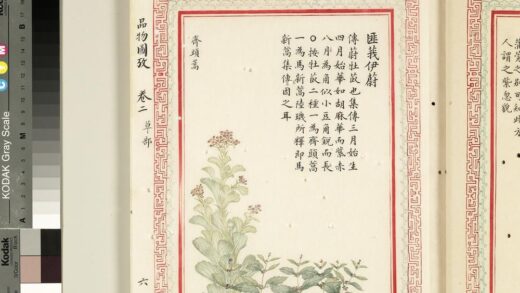 人謂之紫怱貌
匪莪伊蔚
傳蔚牡菣也集傳三月始生
四月始華如胡麻華而紫赤
八月為角似小豆角銳而長
○按牡菣二種一為齊頭蒿
一為馬新蒿陸璣所釋即馬
新蒿集傳因之耳
齊頭蒿
品物圖攷 卷二 草部 六
KODAK Gray Scale
C
M
A
M
Kodak